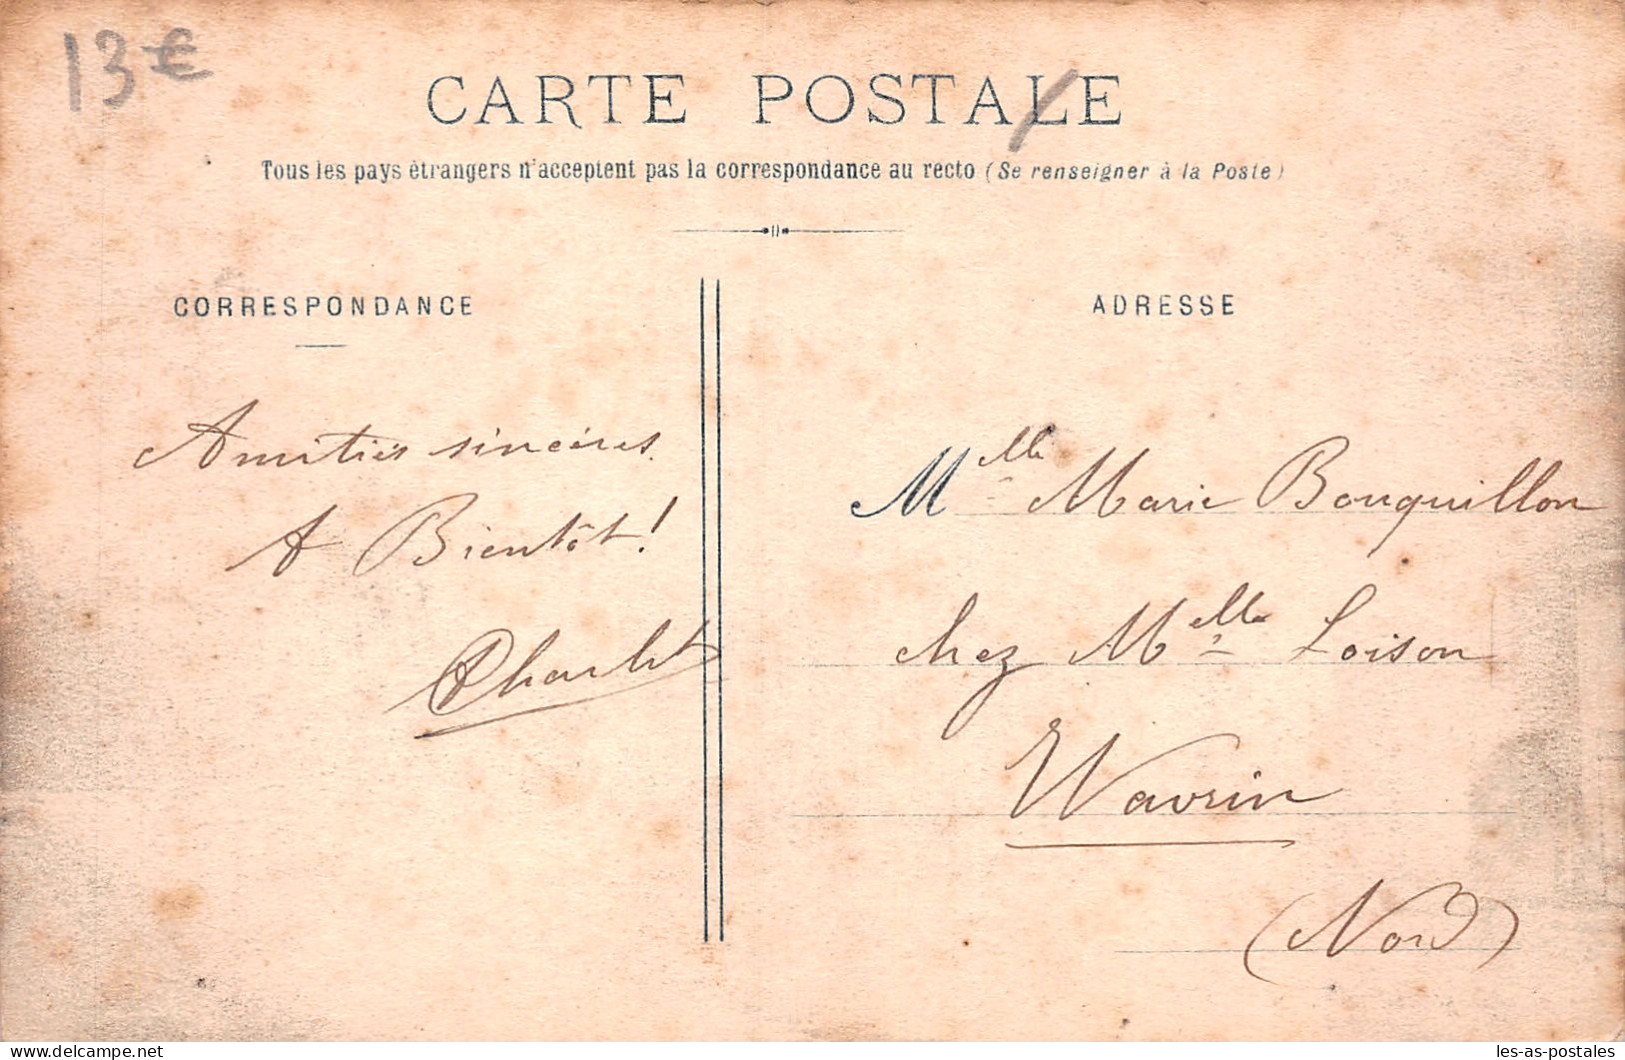 13 €
CARTE POSTALE
Tous les pays étrangers n'acceptent pas la correspondance au recto (Se renseigner à la Poste)
CORRESPONDANCE
Amitiés sincères.
A Bientôt!
ADRESSE
Mlle Marie Bouquillon
chez Mlle Loison
Wavrin
(Nord)
les-as-postales
© delcampe.net